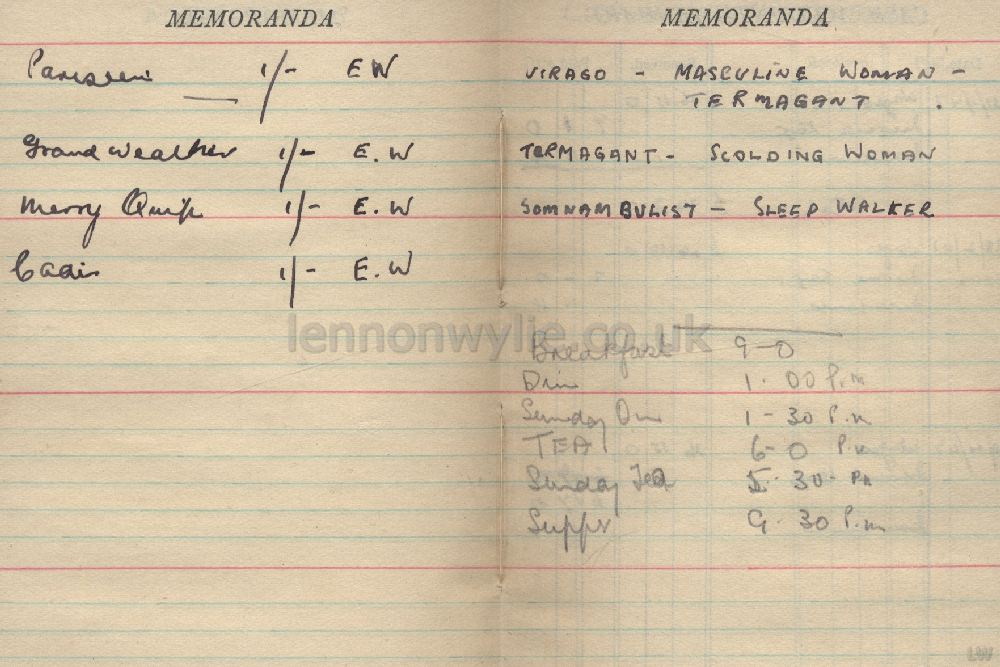 MEMORANDA
1/- EW
Grand weather 1/- E.W
Merry Quip 1/- E.W
Cadir 1/- E.W
MEMORANDA
VIRAGO - MASCULINE WOMAN -
TERMAGANT .
TERMAGANT - SCOLDING WOMAN
SOMNAMBULIST - SLEEP WALKER
Breakfast 9-0
Din 1.00 P.m
Sunday Din 1-30 P.m
TEA 6-0 P.m
Sunday Tea 5.30- Pm
Supper 9.30 P.m
lennonwylie.co.uk
LW